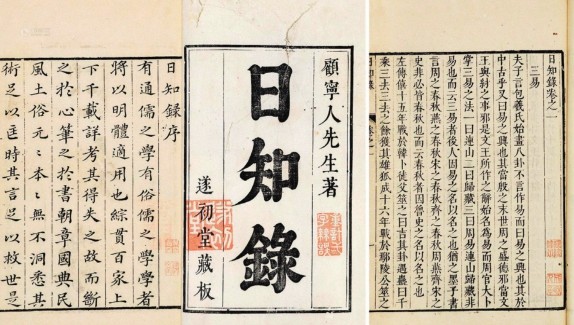 日知錄卷之一
三易
夫子言包羲氏始畫八卦不言作易而曰易之興也其於
中古乎又曰易之興也其當殷之末世周之盛德邪當文
王與紂之事邪是文王所作之辭始名為易而周官大卜
掌三易之法一曰連山二曰歸藏三曰周易連山歸藏非
易也而云三易者後人因易之名以名之也猶之墨子書
言周之春秋燕之春秋宋之春秋齊之春秋周燕齊宋之
史非必皆春秋也而云春秋者因魯史之名以名之也
左傳僖十五年戰於韓卜徒父筮之曰吉其卦遇蠱曰千
乘三去三去之餘獲其雄狐成十六年戰於鄢陵公筮之
日知錄 卷之一
顧寧人先生著
日知錄
遂初堂藏板
日知錄序
有通儒之學有俗儒之學學者
將以明體適用也綜貫百家上
下千載詳考其得失之故而斷
之於心筆之於書朝章國典民
風土俗元〻本〻無不洞悉其
術足以匡時其言足以救世是